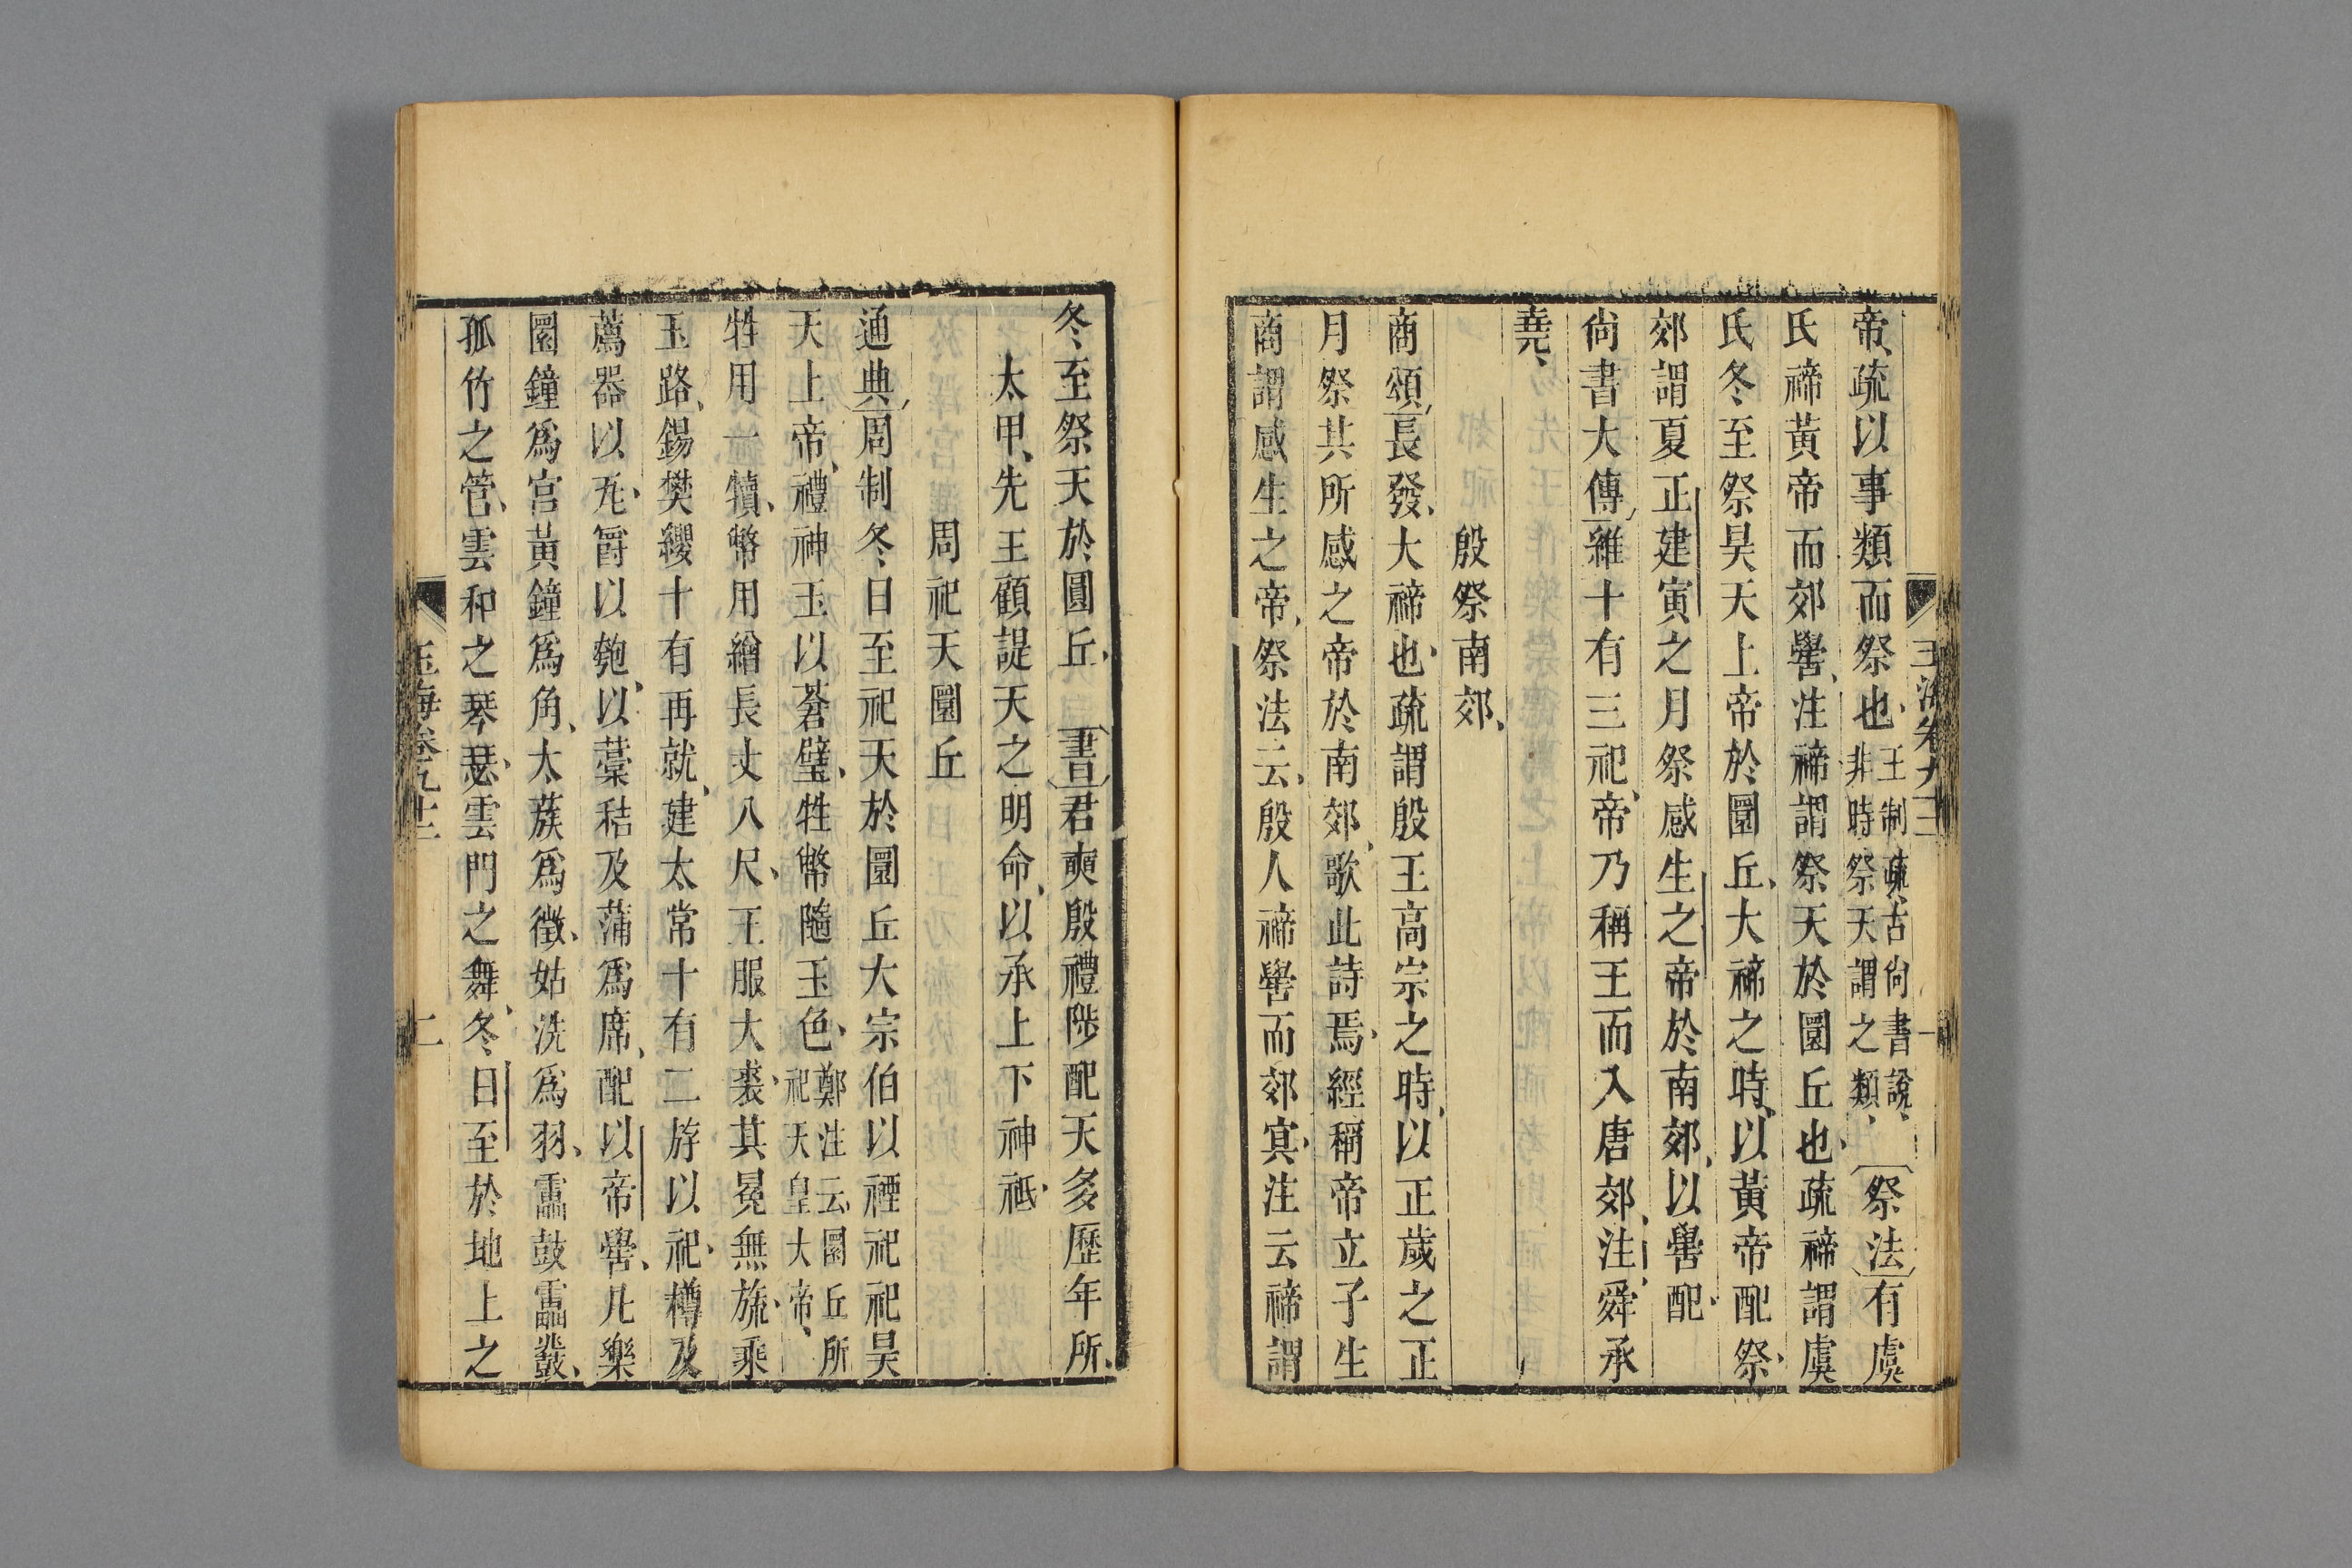 帝疏以事類而祭也王制疏古尚書說非時祭天謂之類祭法有虞
氏禘黃帝而郊嚳注禘謂祭天於圜丘也疏禘謂虞
氏冬至祭昊天上帝於圜丘大禘之時以黃帝配祭
郊謂夏正建寅之月祭感生之帝於南郊以嚳配
尚書大傳維十有三祀帝乃稱王而入唐郊注舜承
堯
殷祭南郊
商頌長發大禘也疏謂殷王高宗之時以正歲之正
月祭其所感之帝於南郊歌此詩焉經稱帝立子生
商謂感生之帝祭法云殷人禘嚳而郊冥注云禘謂
冬至祭天於圓丘書君奭殷禮陟配天多歷年所
太甲先王顧諟天之明命以承上下神祗
周祀天圜丘
通典周制冬日至祀天於圜丘大宗伯以禋祀祀昊
天上帝禮神玉以蒼璧牲幣隨玉色鄭注云圜丘所祀天皇大帝
牲用一犢幣用繒長丈八尺王服大裘其冕無旒乘
玉路錫樊纓十有再就建太常十有二斿以祀樽及
薦器以瓦爵以匏以藁秸及蒲爲席配以帝嚳凡樂
圜鐘爲宮黃鐘爲角太蔟爲徵姑洗爲羽靁鼓靁鼗
孤竹之管雲和之琴瑟雲門之舞冬日至於地上之
玉海卷九十三
二